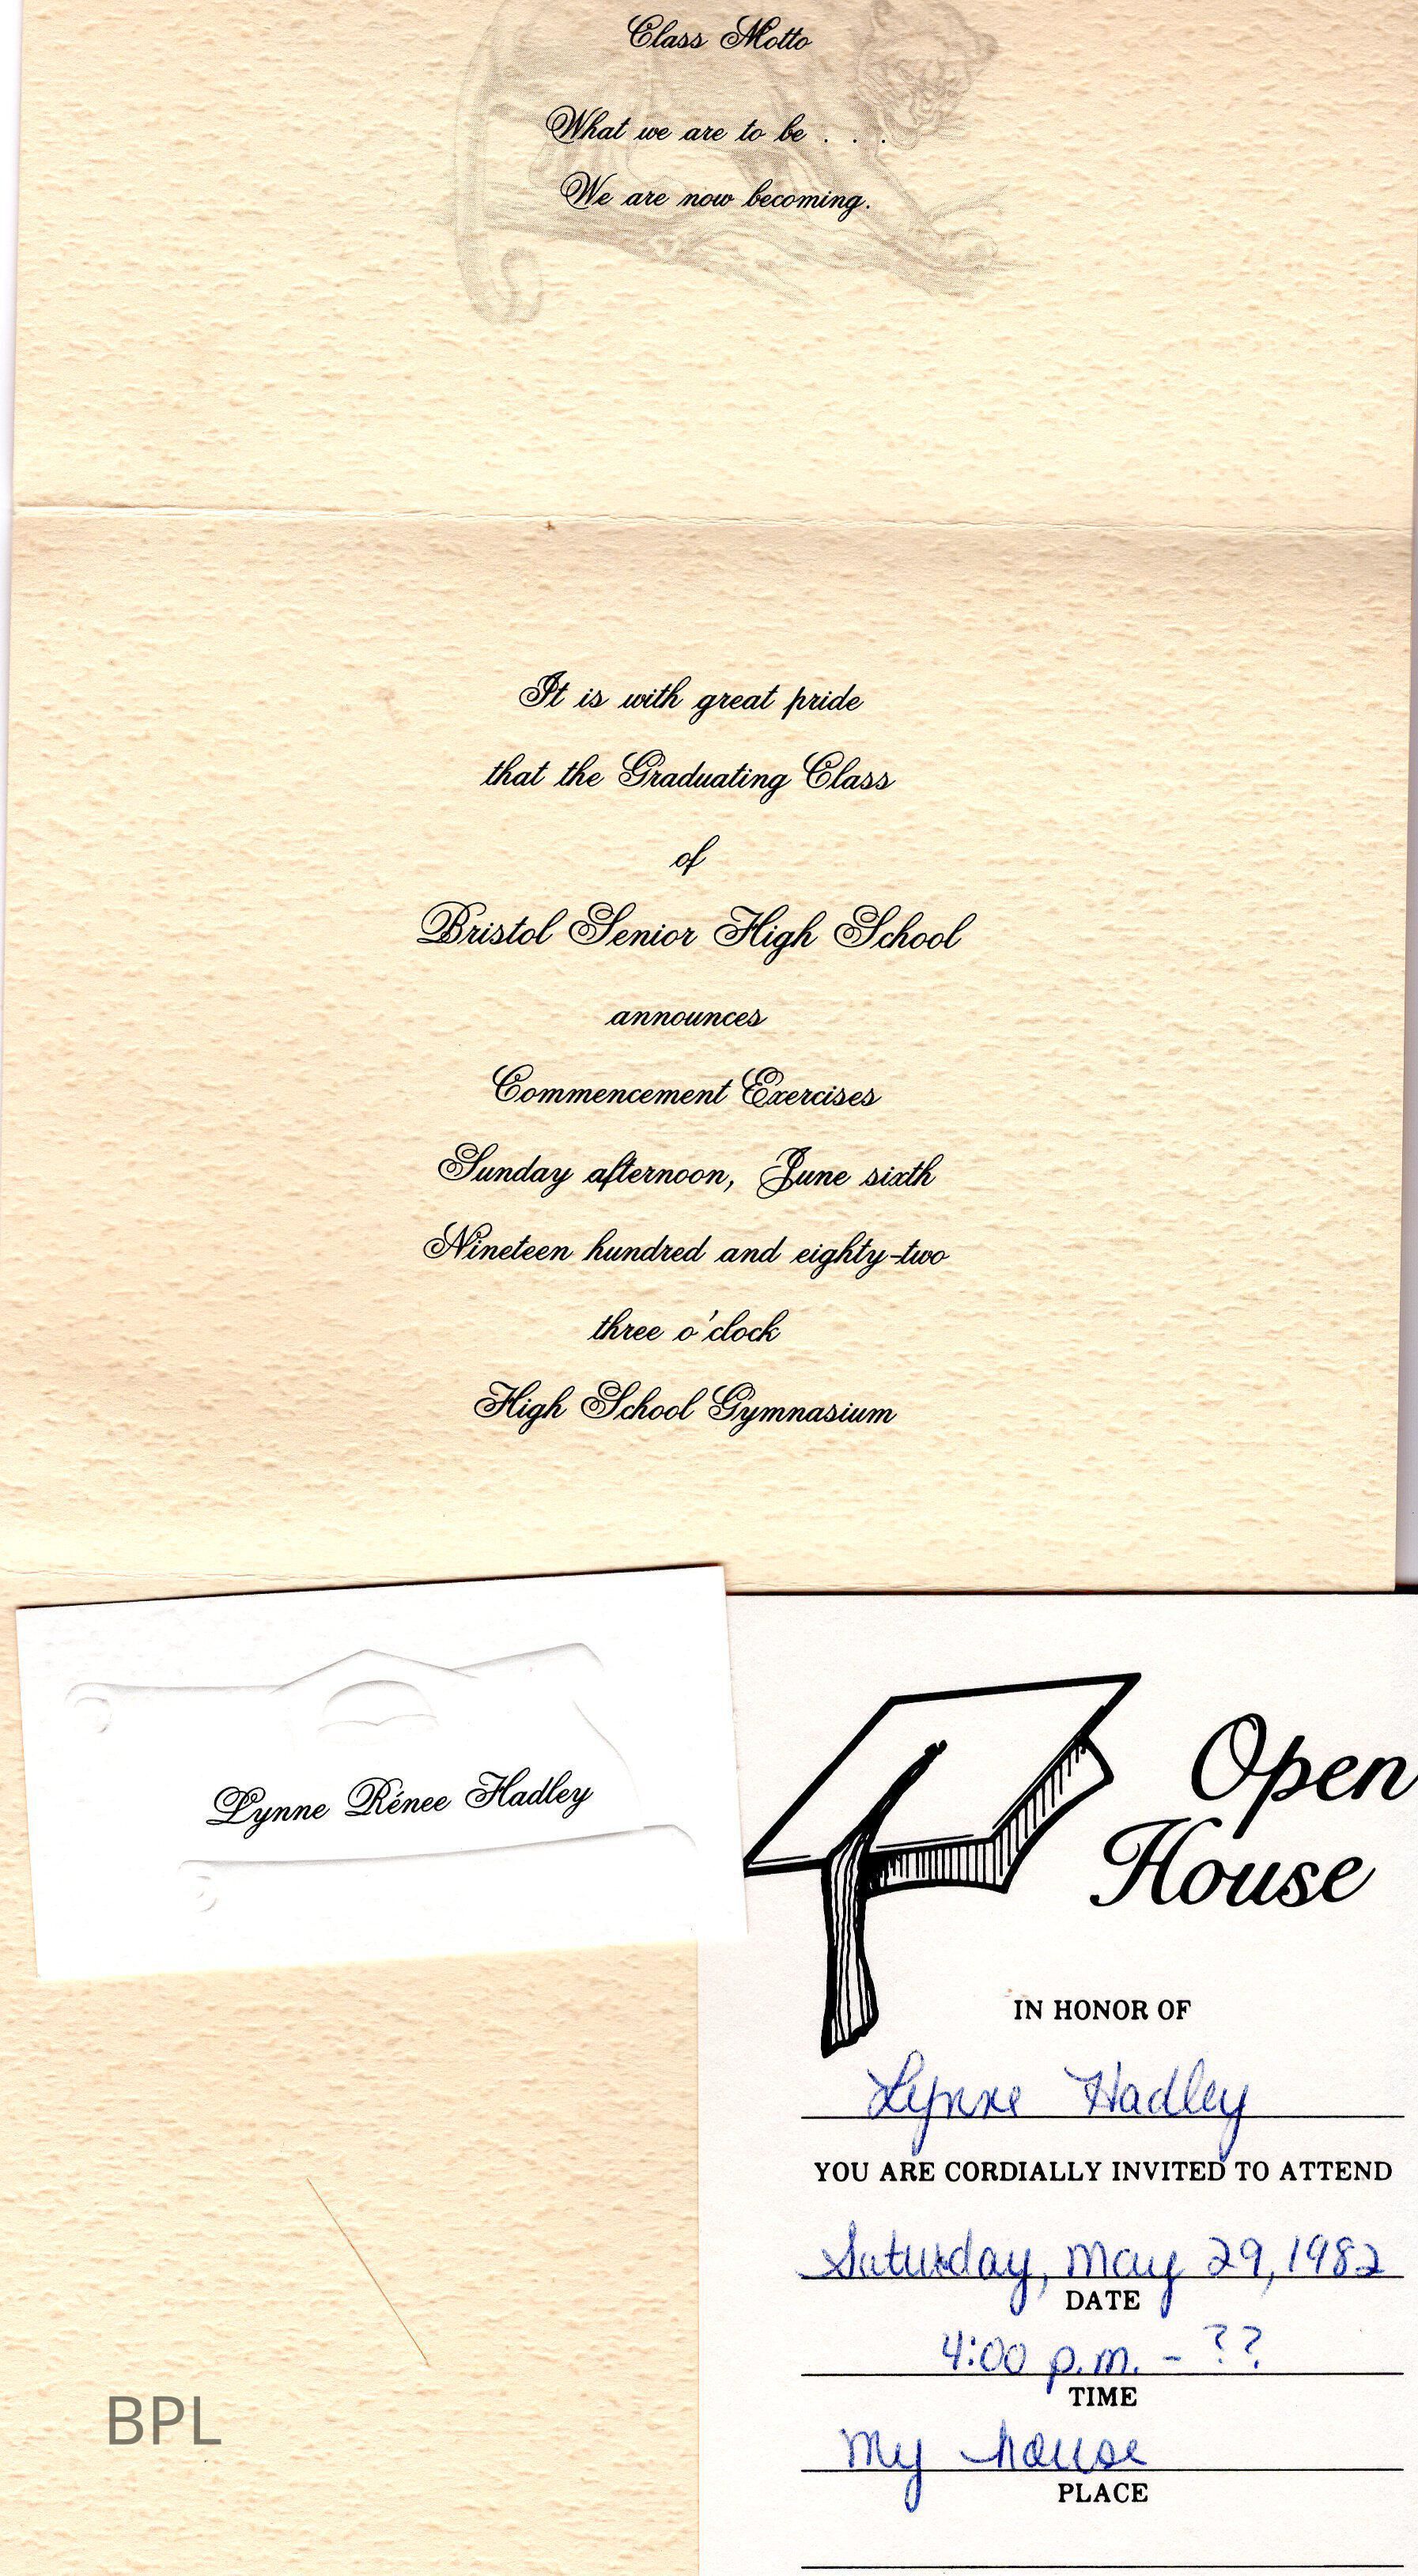 Class Motto
What we are to be . . .
We are now becoming.
It is with great pride
that the Graduating Class
of
Bristol Senior High School
announces
Commencement Exercises
Sunday afternoon, June sixth
Nineteen hundred and eighty-two
three o'clock
High School Gymnasium
Lynne Rénee Hadley
Open
House
IN HONOR OF
Lynne Hadley
YOU ARE CORDIALLY INVITED TO ATTEND
Saturday, May 29, 1982
DATE
4:00 p.m. - ??
TIME
My house
PLACE
BPL